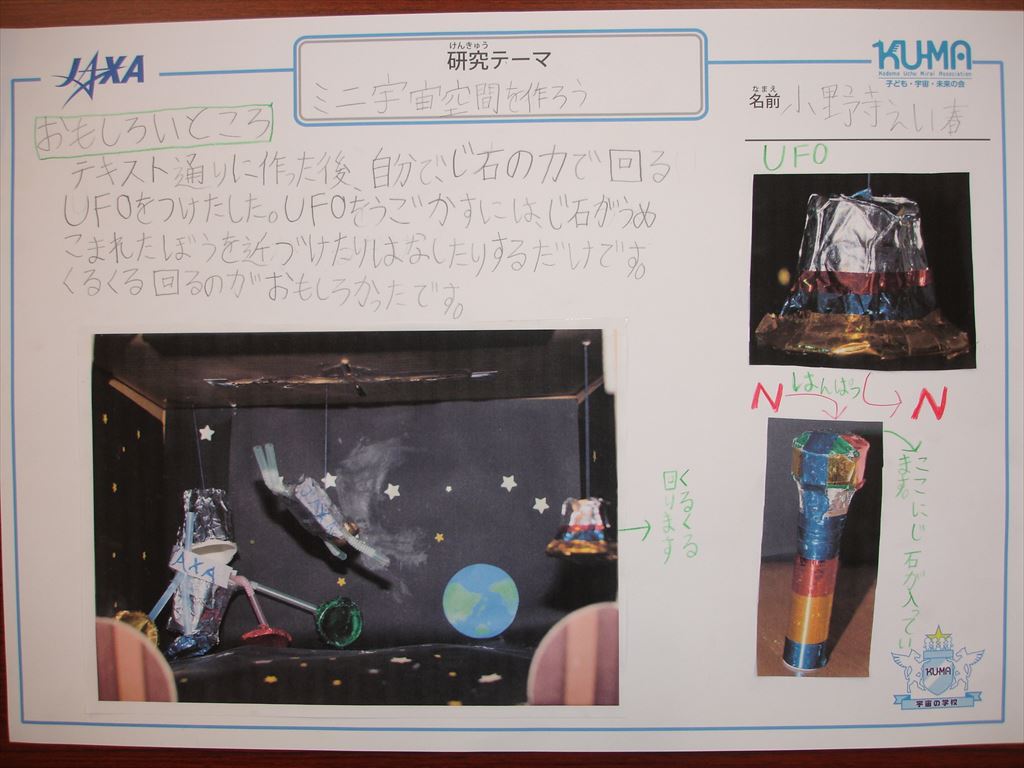 JAXA
けんきゅう
研究テーマ
ミニ宇宙空間を作ろう
KUMA
Kodomo Uchu Mirai Association
子ども・宇宙・未来の会
なまえ
名前 小野寺えい春
おもしろいところ
テキスト通りに作った後、自分で、じ石の力で回る
UFOをつけたした。UFOをうごかすには、じ石がうめ
こまれたぼうを近づけたりはなしたりするだけです。
くるくる回るのがおもしろかったです。
UFO
N はんぱつ N
ここにじ石が入ってい
ます。
くるくる
回ります
JAXA
KUMA
宇宙の学校